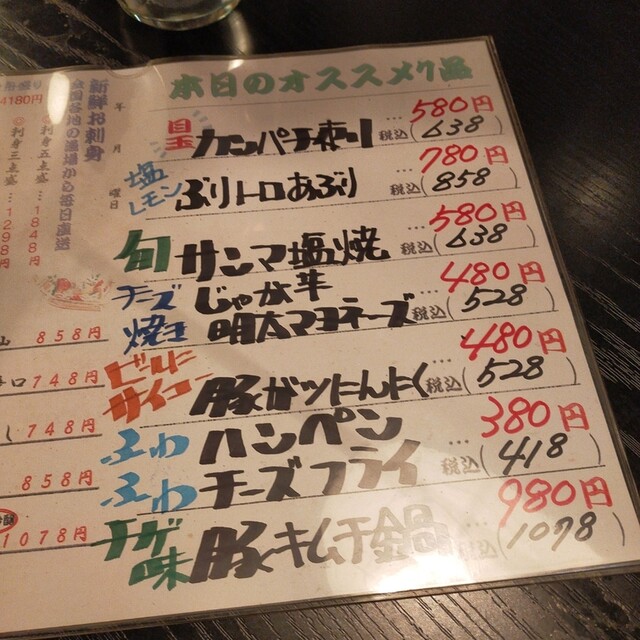 本日のオススメ品
目玉 カンパチ刺 …580円
税込(638)
塩レモン ぶりトロあぶり …780円
税込(858)
旬 サンマ塩焼 …580円
税込(638)
チーズ焼き じゃが芋
明太マヨネーズ …480円
税込(528)
ビールにサイコー 豚ガツにんにく …480円
税込(528)
ふわふわ ハンペン
チーズフライ …380円
税込(418)
チゲ味 豚キムチ鍋 …980円
税込(1078)
年 月 曜日
新鮮お刺身
全国各地の漁場から毎日直送
◎刺身五点盛…1848円
◎刺身三点盛…1298円
盛り
4180円
858円
口 748円
し 748円
858円
1078円